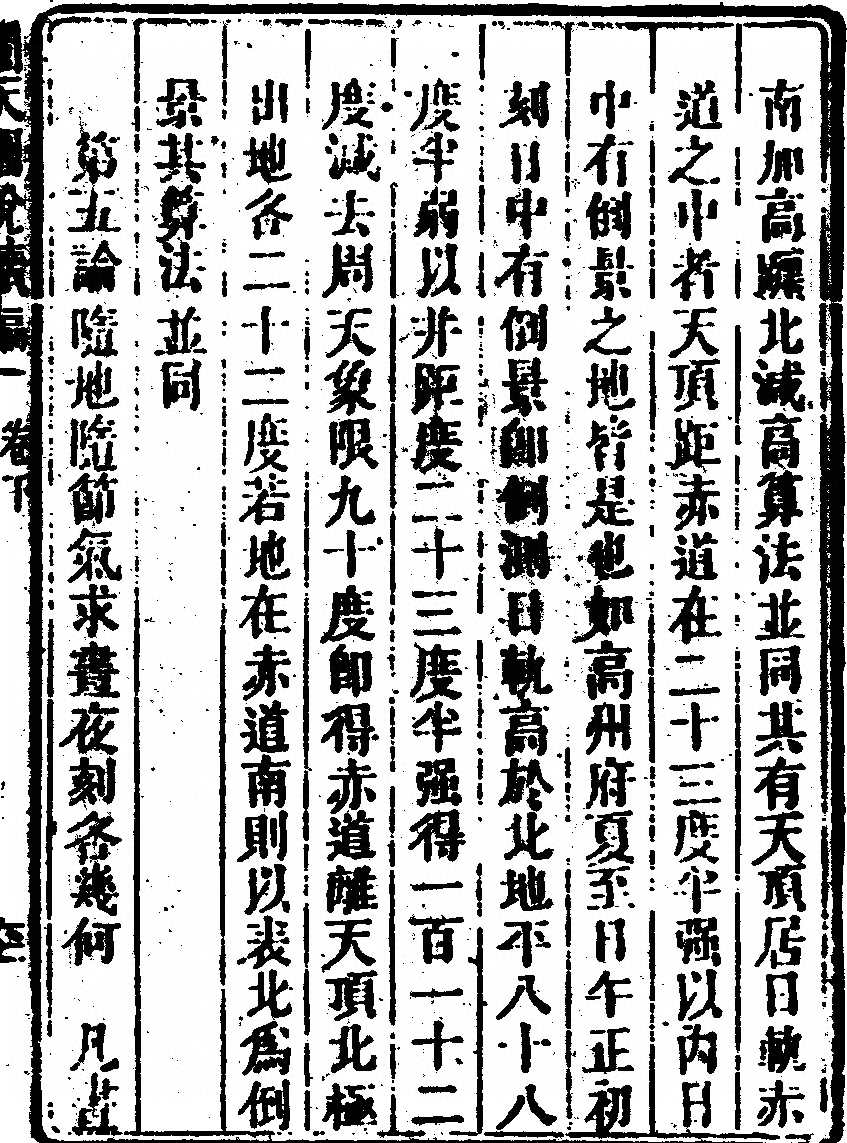 南加高躔北減高算法並同其有天頂居日軌赤
道之中者天頂距赤道在二十三度半强以內日
中有倒景之地皆是也如高州府夏至日午正初
刻日中有倒景卽倒測日軌高於北地平八十八
度半弱以井距度二十三度半强得一百一十二
度減去周天象限九十度卽得赤道離天頂北極
出地各二十二度若地在赤道南則以表北爲倒
景其算法並同
第五論隨地隨節氣求晝夜刻各幾何 凡
卷下